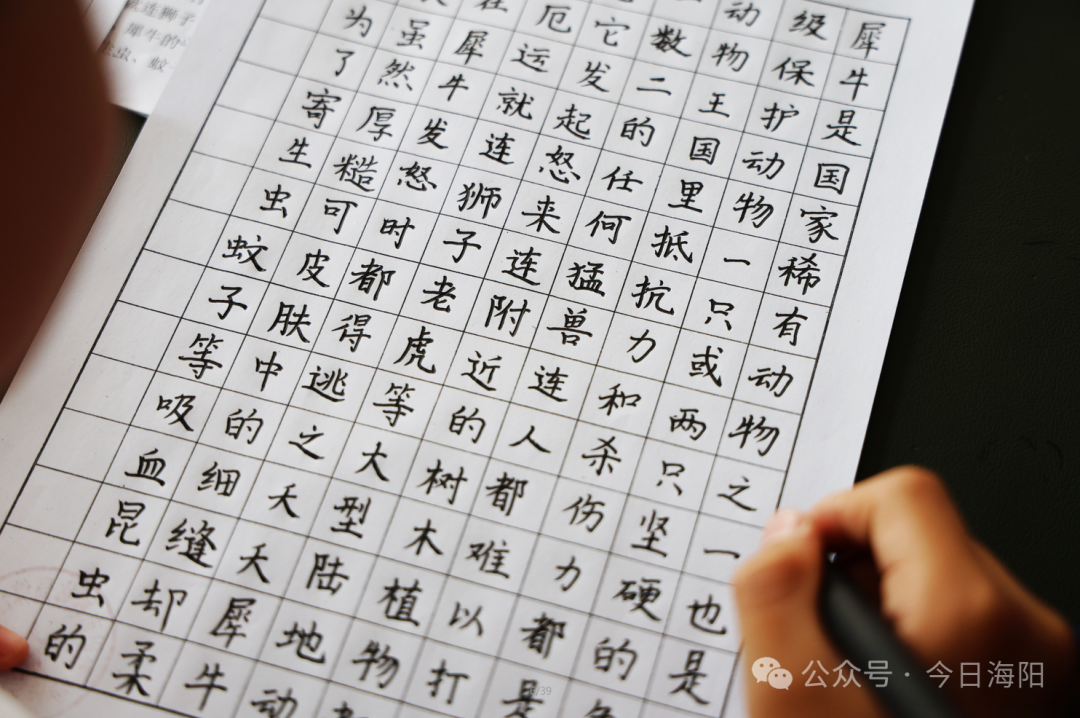 犀牛是国家稀有动物之一也是
级保护动物一只或两只坚硬的
动物王国里抵抗力和杀伤力都是
数二的任何猛兽连人都难以打
它发起怒来连附近的树木植物
厄运就连狮子老虎等大型陆地动
在犀牛发怒时都得逃之夭夭犀牛
虽然厚糙可皮肤中的细缝却柔
为了寄生虫蚊子等吸血昆虫的
连狮子
犀牛的
虫、蚊
/39
公众号·今日海阳